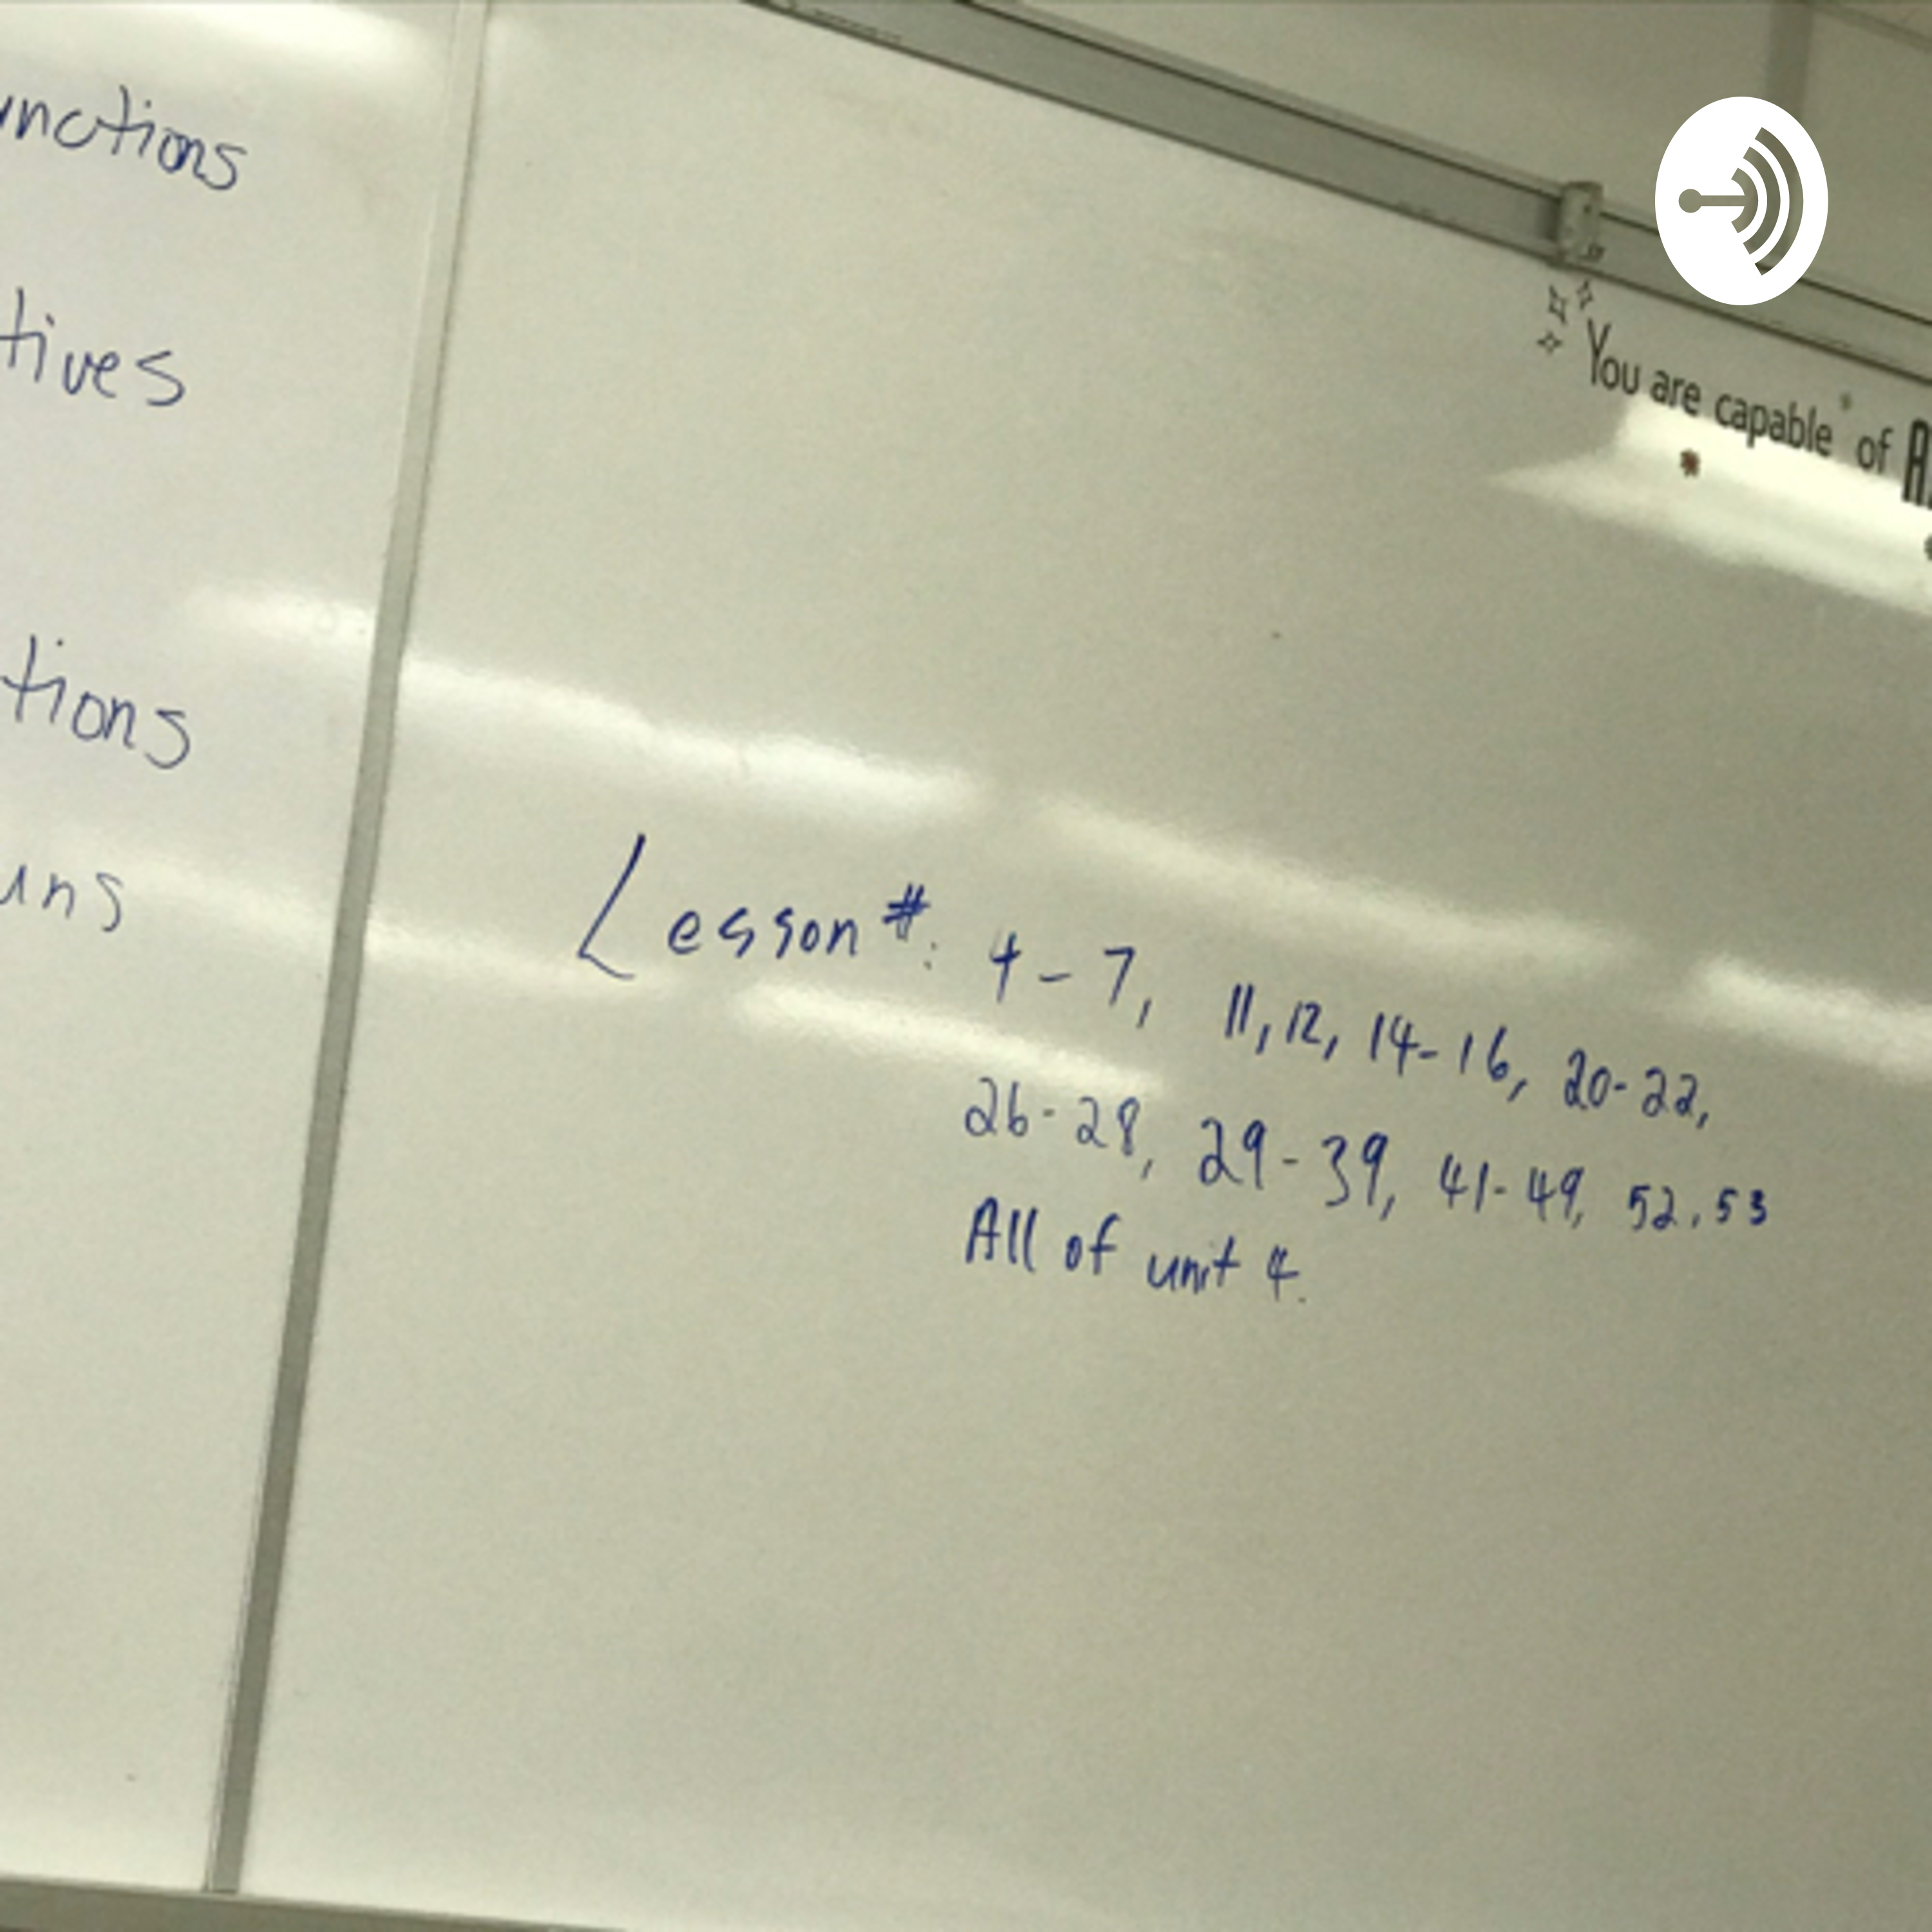 unctions
tives
tions
uns
You are capable of A
Lesson #: 4-7, 11, 12, 14-16, 20-22,
26-28, 29-39, 41-49, 52, 53
All of unit 4.